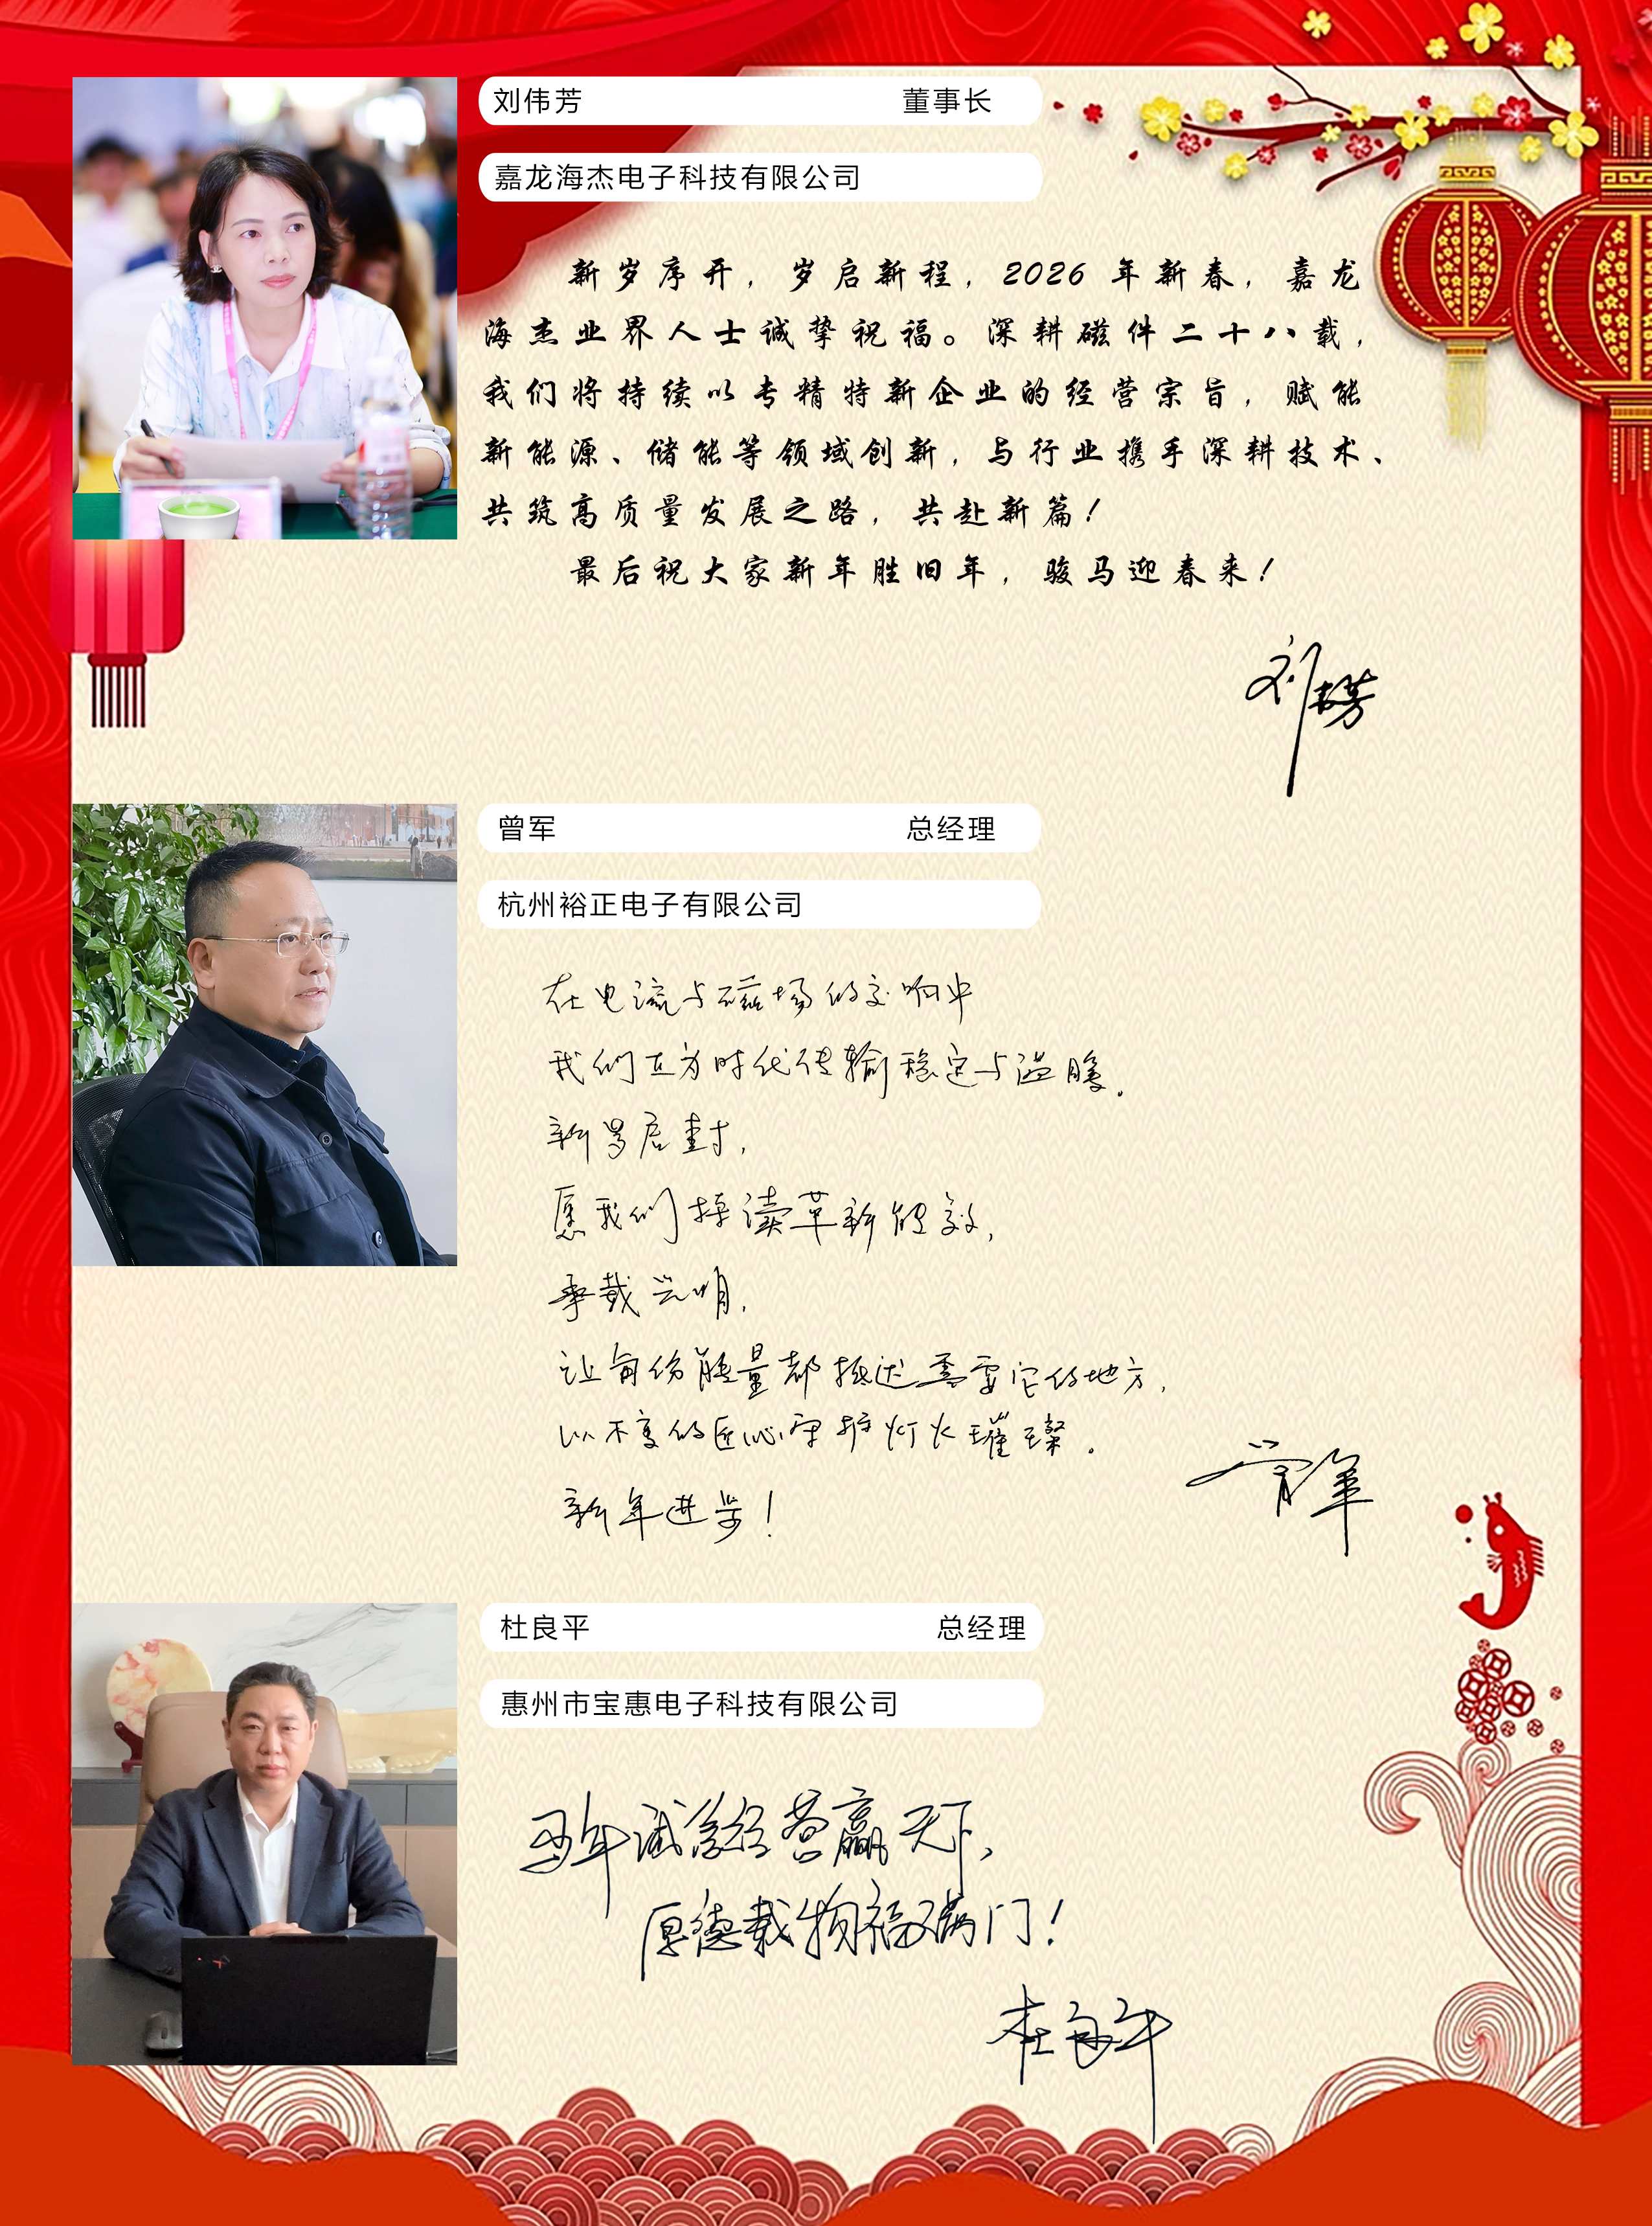 刘伟芳 董事长
嘉龙海杰电子科技有限公司
新岁序开，岁启新程，2026 年新春，嘉龙
海杰业界人士诚挚祝福。深耕磁件二十八载，
我们将持续以专精特新企业的经营宗旨，赋能
新能源、储能等领域创新，与行业携手深耕技术、
共筑高质量发展之路，共赴新篇！
最后祝大家新年胜旧年，骏马迎春来！
曾军 总经理
杭州裕正电子有限公司
在电流与磁场的交响中
我们在为时代传输稳定与温暖。
新岁启封，
愿我们持续革新能效，
承载光明，
让每份能量都抵达需要它的地方，
以不变的匠心守护灯火璀璨。
新年进步！
曾军
杜良平 总经理
惠州市宝惠电子科技有限公司
马年诚信经营赢天下，
厚德载物福满门！
杜良平